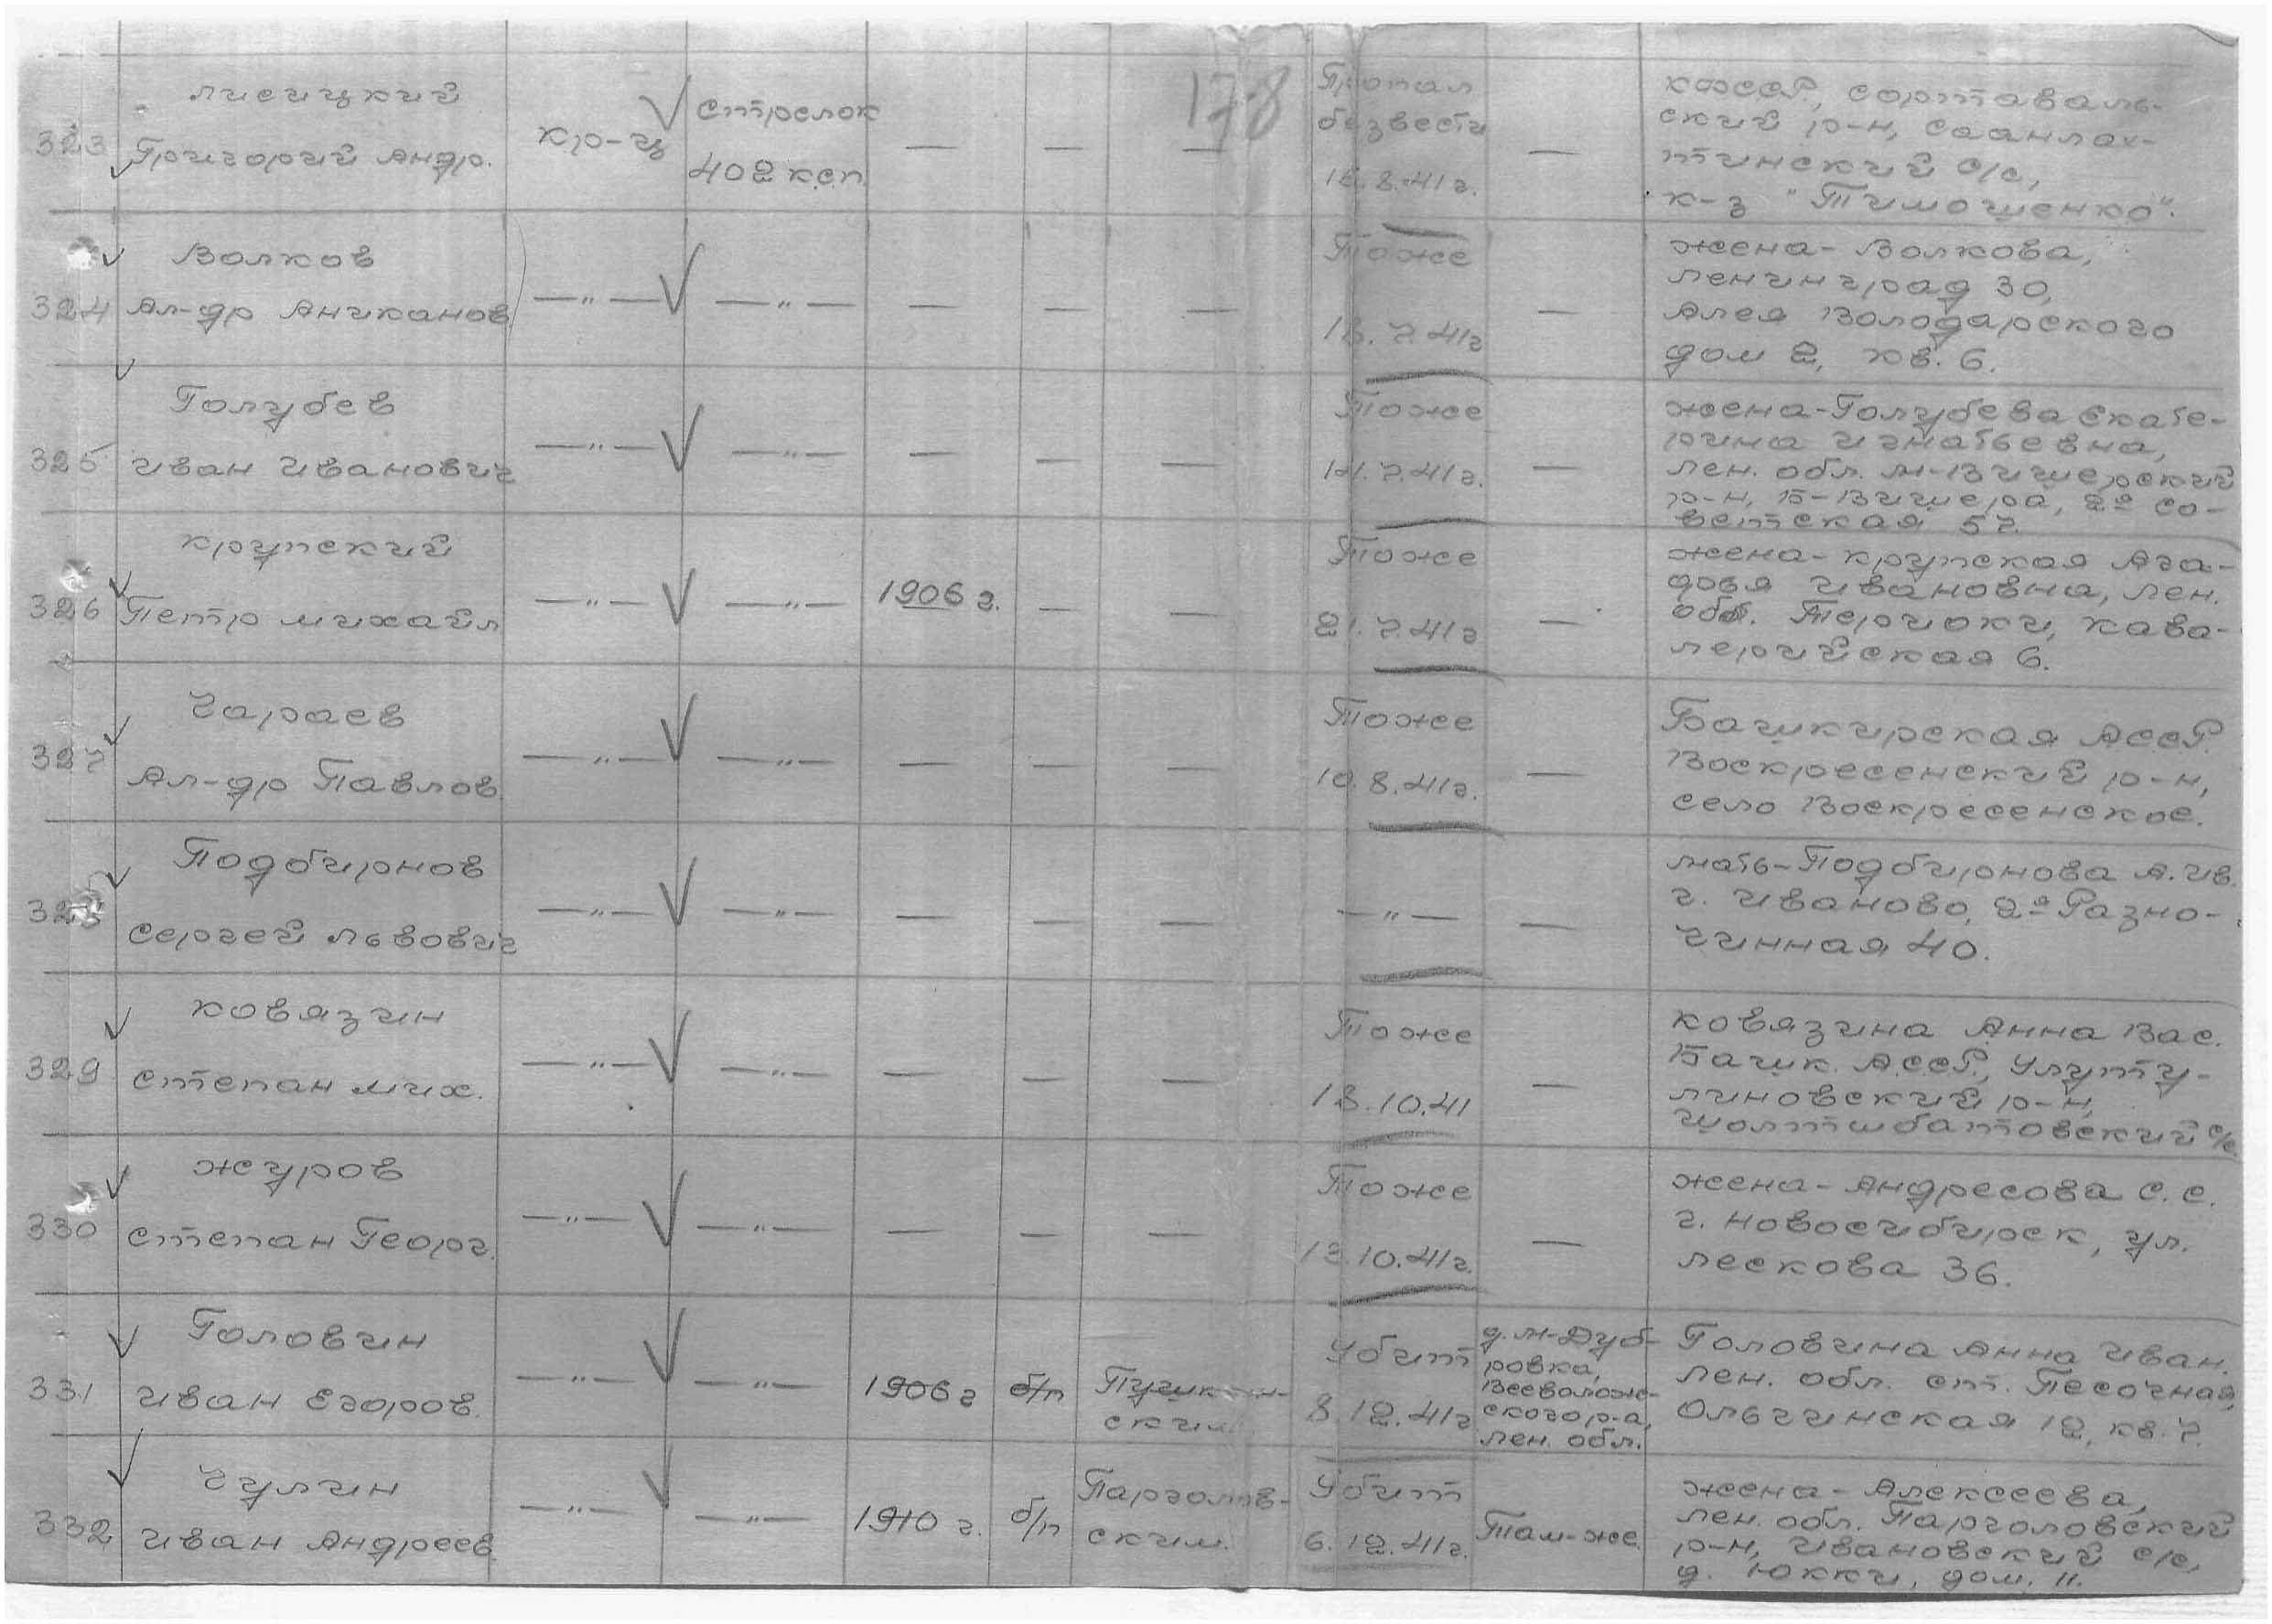 178
323
Лисицкий
Григорий Андр.
кр-ц
Стрелок
402 к.с.п.
— — —
Пропал
безвести
—
КФССР, Сортаваль-
ский р-н, Саанлах-
тинский с/с,
к-з "Тимошенко".
324
Волков
Ал-др Аниканов
—„— —„— — — —
Тоже
7.41г
—
жена - Волкова,
Ленинград 30,
Алея Володарского
дом 2, кв. 6.
325
Голубев
Иван Иванович
—„— —„— — — —
Тоже
7.41г.
—
жена-Голубева Екате-
рина Игнатьевна,
Лен. обл. М-Вишерский
р-н, Б-Вишера, 2ª Со-
ветская 57.
326
Крупский
Петр Михайл
—„— —„— 1906 г. — —
Тоже
21.7.41г
—
жена-Крупская Ага-
фовя Ивановна, Лен.
обл. Териоки, Кава-
лерийская 6.
327
Чараев
Ал-др Павлов
—„— —„— — — —
Тоже
10.8.41г.
—
Башкирская АССР.
Воскресенский р-н,
село Воскресенское.
328
Подбирнов
Сергей Львович
—„— —„— — — —
—„—
—
мать-Подбирнова А.Ив.
г. Иваново, 2ª Разно-
чинная 40.
329
Ковязин
Степан Мих.
—„— —„— — — —
Тоже
13.10.41
—
Ковязина Анна Вас.
Башк. АССР, Улуту-
линовский р-н,
с/с
330
Журов
Степан Георг.
—„— —„— — — —
Тоже
13.10.41г.
—
жена-Андресова С.С.
г. Новосибирск, ул.
Лескова 36.
331
Головин
Иван Егоров.
—„— —„— 1906 г б/п
Пушкин-
ским
Убит
8.12.41г
д. М-Дуб-
ровка,
Всеволож-
ского р-а,
Лен. обл.
Головина Анна Иван.
Лен. обл. ст. Песочная,
Ольгинская 12, кв. 7.
332
Чулин
Иван Андреев.
—„— —„— 1910 г. б/п
Парголов-
ским.
Убит
6.12.41г.
Там-же
жена - Алексеева,
Лен. обл. Парголовский
р-н, Ивановский с/с,
д. Юкки, дом. 11.